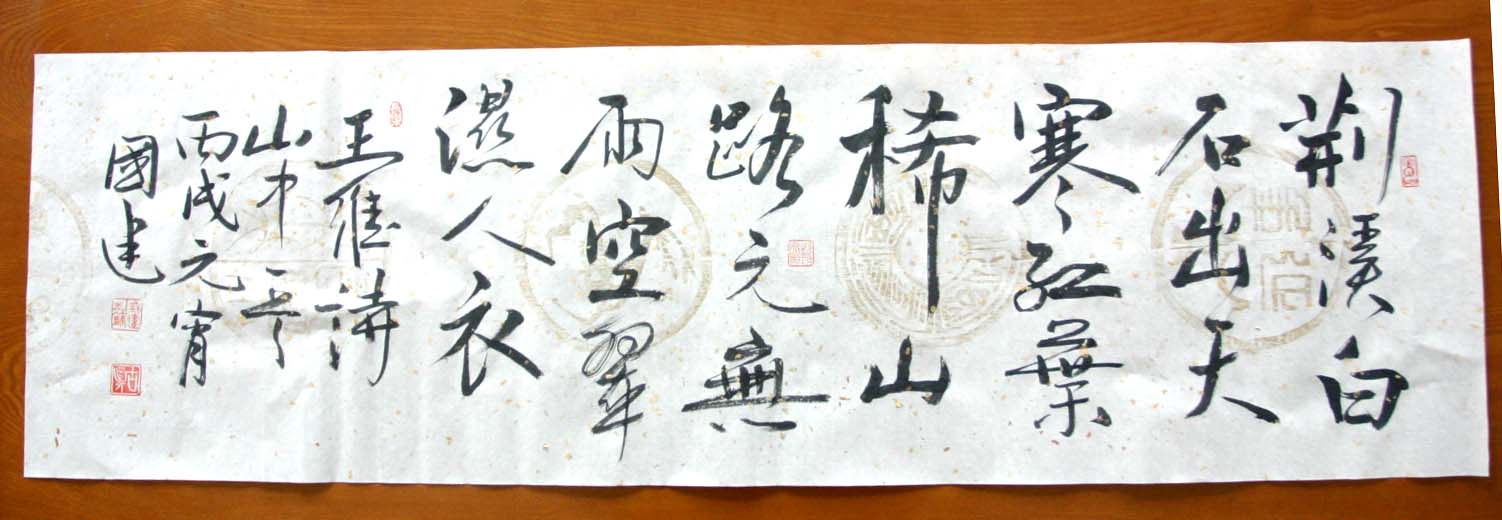 荆溪白
石出天
寒红葉
稀山
路元無
雨空翠
濕人衣
王維詩
山中
丙戌元宵
國建